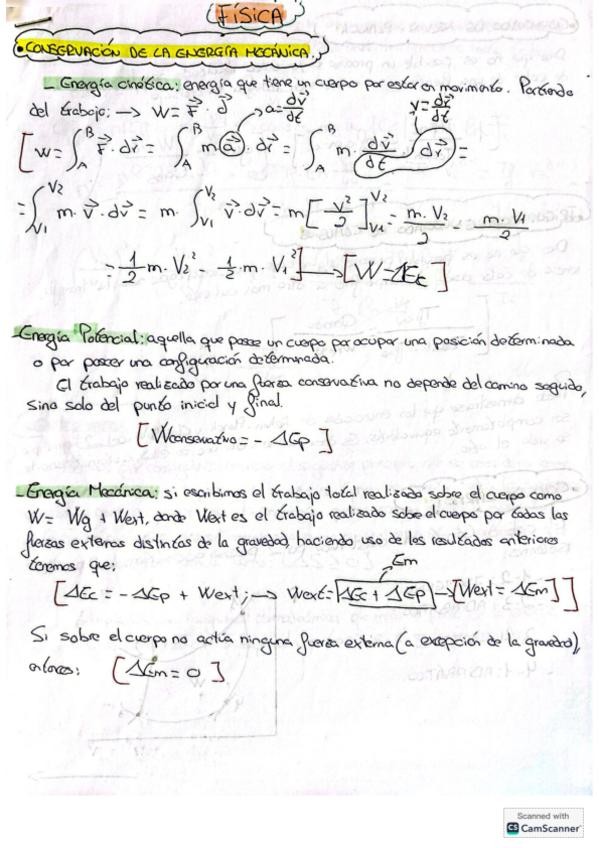 FÍSICA
• CONSERVACIÓN DE LA ENERGÍA MECÁNICA.
- Energía cinética: energía que tiene un cuerpo por estar en movimiento. Partiendo
del trabajo: → W = F⃗ · d⃗ a = dv⃗/dt v = dr⃗/dt
[W = ∫_A^B F⃗ · dr⃗ = ∫_A^B m a⃗ · dr⃗ = ∫_A^B m · dv⃗/dt · dr⃗ =
= ∫_V1^V2 m · v⃗ · dv⃗ = m · ∫_V1^V2 v⃗ · dv⃗ = m [v²/2]_V1^V2 = m · V2/2 - m · V1/2
= 1/2 m · V2² - 1/2 · m · V1²] → [W = ΔEc]
- Energía Potencial: aquella que posee un cuerpo por ocupar una posición determinada
o por poseer una configuración determinada.
El trabajo realizado por una fuerza conservativa no depende del camino seguido,
sino solo del punto inicial y final.
[Wconservativo = - ΔEp]
- Energía Mecánica: si escribimos el trabajo total realizado sobre el cuerpo como
W = Wg + Wext, donde Wext es el trabajo realizado sobre el cuerpo por todas las
fuerzas externas distintas de la gravedad, haciendo uso de los resultados anteriores
tenemos que: Em
[ΔEc = - ΔEp + Wext; → Wext = ΔEc + ΔEp → [Wext = ΔEm]]
Si sobre el cuerpo no actúa ninguna fuerza externa (a excepción de la gravedad),
entonces: [ΔEm = 0]
Scanned with
CS CamScanner